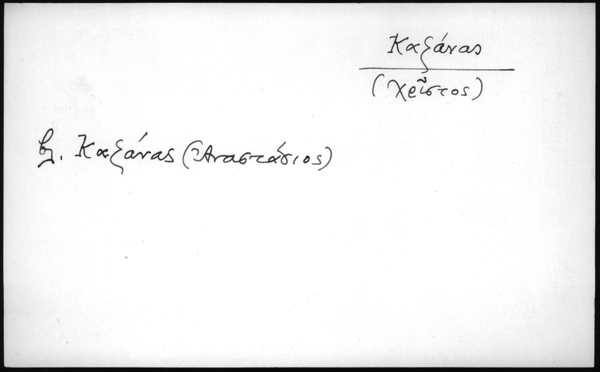 Καζάνας
(Χρῖστος)
βλ. Καζάνας (Ἀναστάσιος)